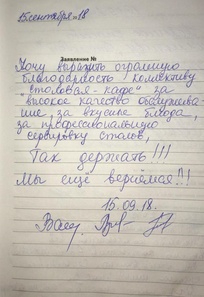 15 сентября 18
Заявление №
Хочу выразить огромную
благодарность коллективу
"столовая-кафе" за
высокое качество обслужива-
ние, за вкусные блюда,
за профессиональную
сервировку столов,
Так держать!!!
Мы ещё вернёмся!!!
15.09.18.